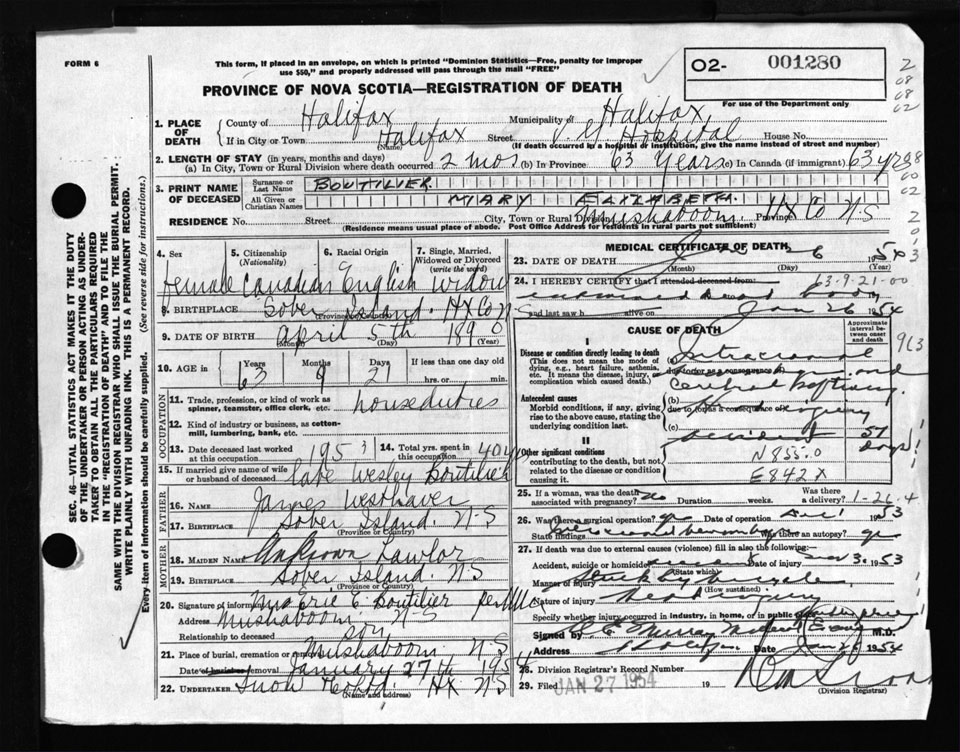 FORM 6
This form, if placed in an envelope, on which is printed "Dominion Statistics—Free, penalty for improper
use $50," and properly addressed will pass through the mail "FREE"
O2- 001280
For use of the Department only
PROVINCE OF NOVA SCOTIA—REGISTRATION OF DEATH
1. PLACE OF DEATH
County of Halifax Municipality of Halifax
If in City or Town Halifax Street V. G. Hospital House No.
(Name) (If death occurred in a hospital or institution, give the name instead of street and number)
2. LENGTH OF STAY (in years, months and days)
(a) In City, Town or Rural Division where death occurred 2 mos. (b) In Province 63 Years (c) In Canada (if immigrant) 63 yrs
3. PRINT NAME OF DECEASED
Surname or Last Name BOUTILIER
All Given or Christian Names MARY ELIZABETH
RESIDENCE No. Street City, Town or Rural Division Mushaboom. Province Hx Co N S
(Residence means usual place of abode. Post Office Address for residents in rural parts not sufficient)
4. Sex 5. Citizenship (Nationality) 6. Racial Origin 7. Single, Married, Widowed or Divorced (write the word)
Female Canadian English Widow
8. BIRTHPLACE Sober Island. Hx Co N S
(Province or Country)
9. DATE OF BIRTH April 5th 1890
(Month) (Day) (Year)
10. AGE in Years Months Days If less than one day old
63 9 21 hrs. or min.
OCCUPATION
11. Trade, profession, or kind of work as spinner, teamster, office clerk, etc. house duties
12. Kind of industry or business, as cotton-mill, lumbering, bank, etc.
13. Date deceased last worked at this occupation 1953 14. Total yrs. spent in this occupation 40 yrs
15. If married give name of wife or husband of deceased late Wesley Boutilier
FATHER
16. Name James Westhaver
17. BIRTHPLACE Sober Island. N-S
(Province or Country)
MOTHER
18. MAIDEN NAME Unknown Lawlor
19. BIRTHPLACE Sober Island. NS
(Province or Country)
20. Signature of informant E. Boutilier
Address Mushaboom N-S
Relationship to deceased son
21. Place of burial, cremation or removal Mushaboom N-S
Date of burial or removal January 27th 1954
22. UNDERTAKER Snow Hx NS
(Name and address)
MEDICAL CERTIFICATE OF DEATH
23. DATE OF DEATH 6
(Month) (Day) (Year)
24. I HEREBY CERTIFY that I attended deceased from: 63-9-21-00
and last saw h alive on Jan 26 1954
CAUSE OF DEATH
Approximate interval between onset and death
I
Disease or condition directly leading to death
(This does not mean the mode of dying, e.g., heart failure, asthenia, etc. It means the disease, injury, or complication which caused death.)
(a) Intracranial
due to (or as a consequence of) and
Antecedent causes
Morbid conditions, if any, giving rise to the above cause, stating the underlying condition last.
(b) Head injury
due to (or as a consequence of)
(c) accident 57 days
963
II
Other significant conditions
contributing to the death, but not related to the disease or condition causing it.
N855.0
E842X
25. If a woman, was the death associated with pregnancy? no Duration weeks. Was there a delivery? 1-26-4
26. Was there a surgical operation? yes Date of operation Dec 1 1953
State findings Was there an autopsy? yes
27. If death was due to external causes (violence) fill in also the following:—
Accident, suicide or homicide? accident 1953
(State which)
Manner of injury Struck by bicycle
(How sustained)
Nature of injury Head injury
Specify whether injury occurred in industry, in home, or in public place
Signed by M.D.
Address Halifax Date Jan 26 1954
28. Division Registrar's Record Number
29. Filed JAN 27 1954 19
(Division Registrar)
SEC. 46—VITAL STATISTICS ACT MAKES IT THE DUTY
OF THE UNDERTAKER OR PERSON ACTING AS UNDER-
TAKER TO OBTAIN ALL THE PARTICULARS REQUIRED
IN THE "REGISTRATION OF DEATH" AND TO FILE THE
SAME WITH THE DIVISION REGISTRAR WHO SHALL ISSUE THE BURIAL PERMIT.
WRITE PLAINLY WITH UNFADING INK. THIS IS A PERMANENT RECORD.
Every item of information should be carefully supplied. (See reverse side for instructions.)